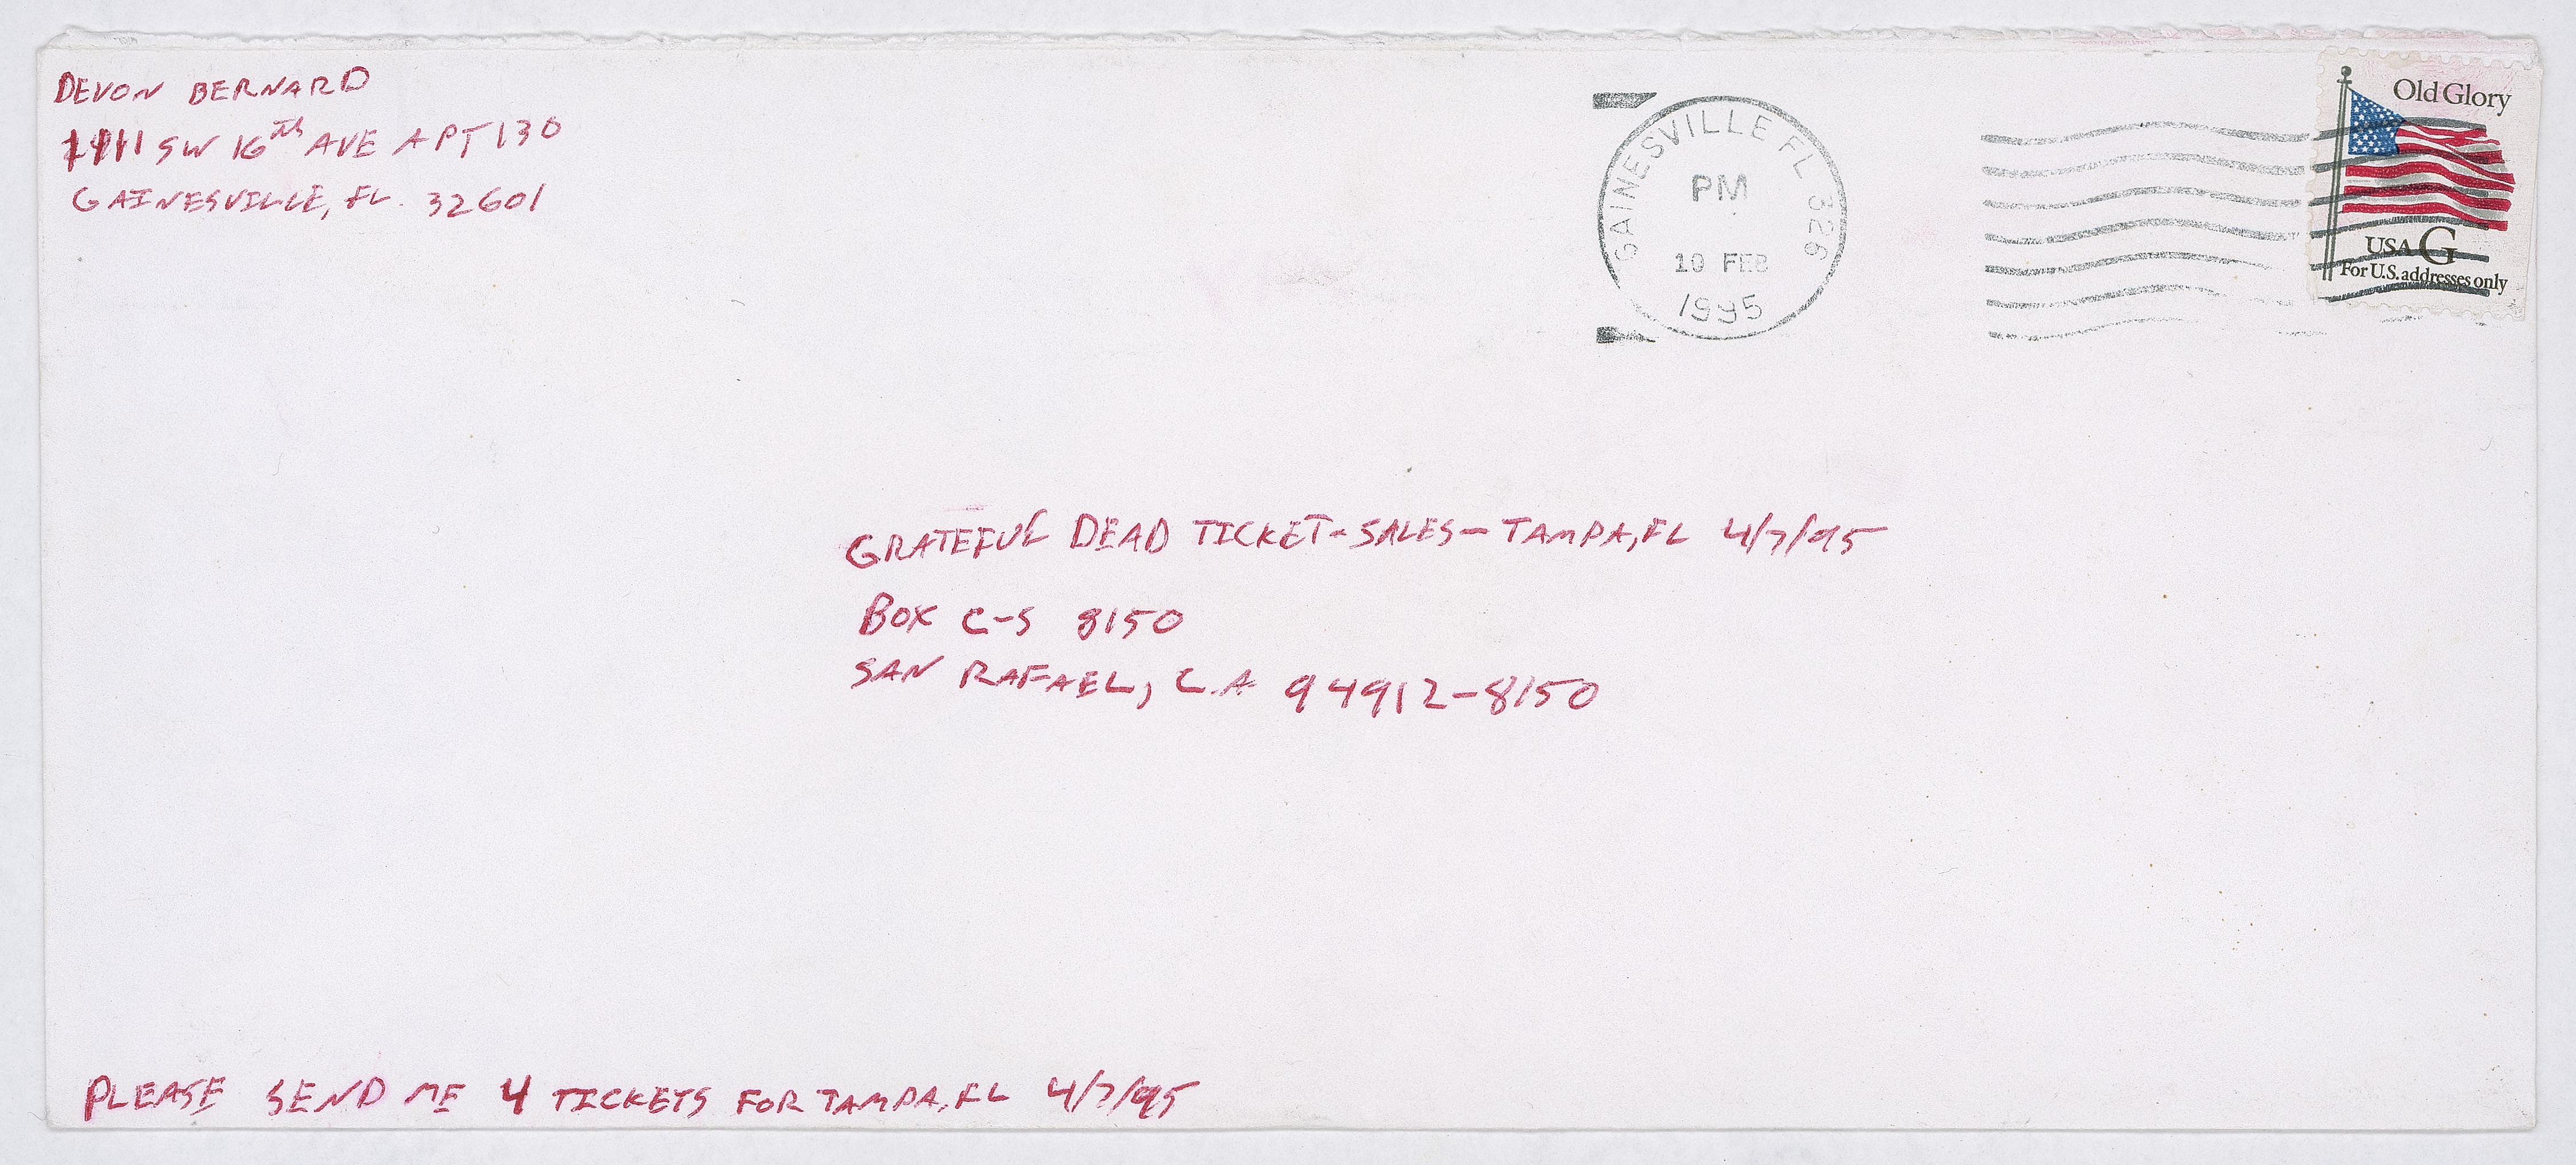 DEVON BERNARD
1911 SW 16th AVE APT 130
GAINESVILLE, FL. 32601
GAINESVILLE FL 326
PM
10 FEB
1995
Old Glory
USA G
For U.S. addresses only
GRATEFUL DEAD TICKET-SALES-TAMPA, FL 4/7/95
BOX C-S 8150
SAN RAFAEL, CA 94912-8150
PLEASE SEND ME 4 TICKETS FOR TAMPA, FL 4/7/95